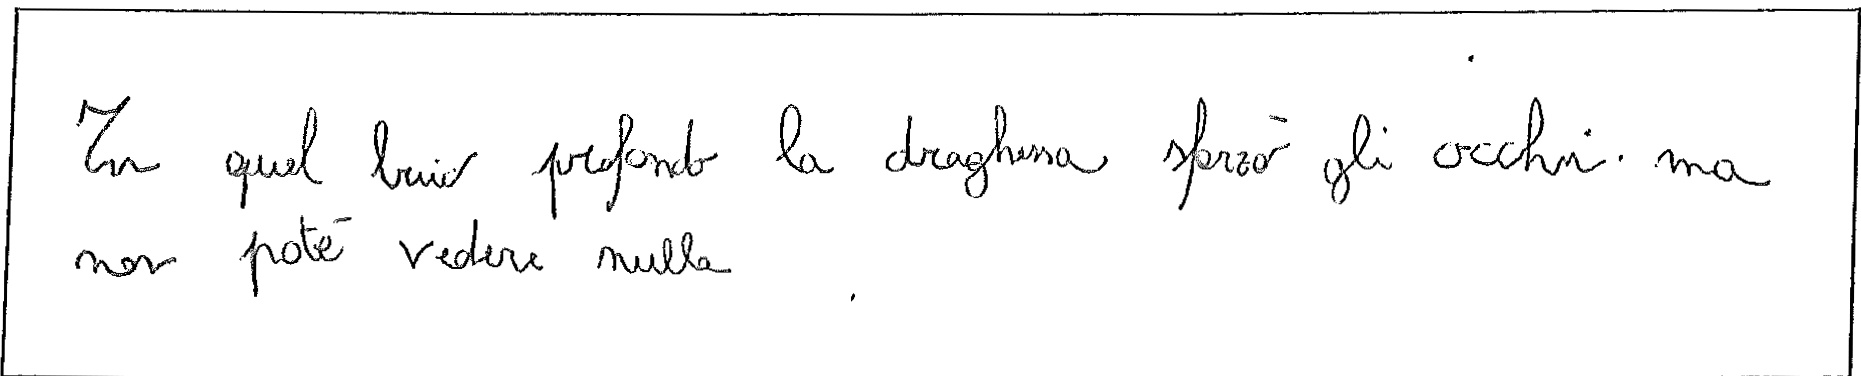 In quel buio profondo la draghessa sforzò gli occhi. ma
non poté vedere nulla